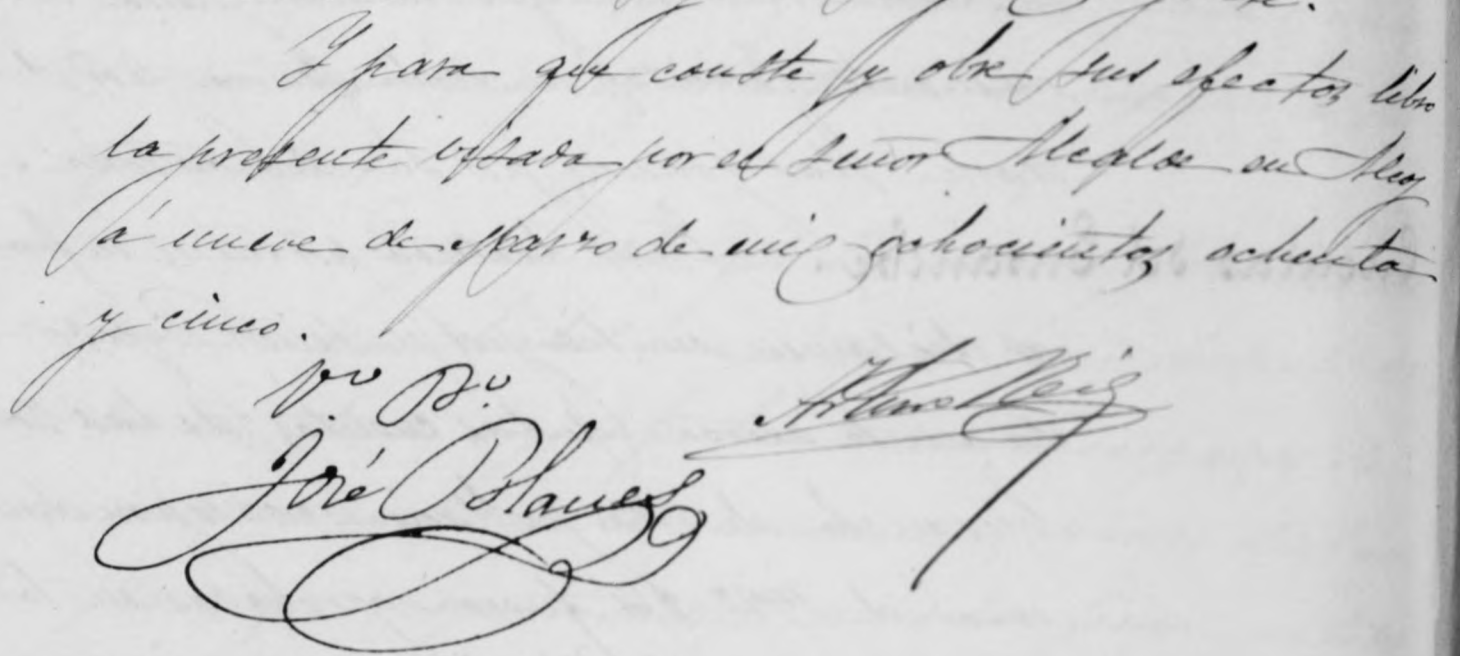 Y para que conste y obre sus efectos libro
la presente visada por el Señor Alcalde en Alcoy
á nueve de Marzo de mil ochocientos ochenta
y cinco.
Vº Bº
Arturo Reig
José Blanes